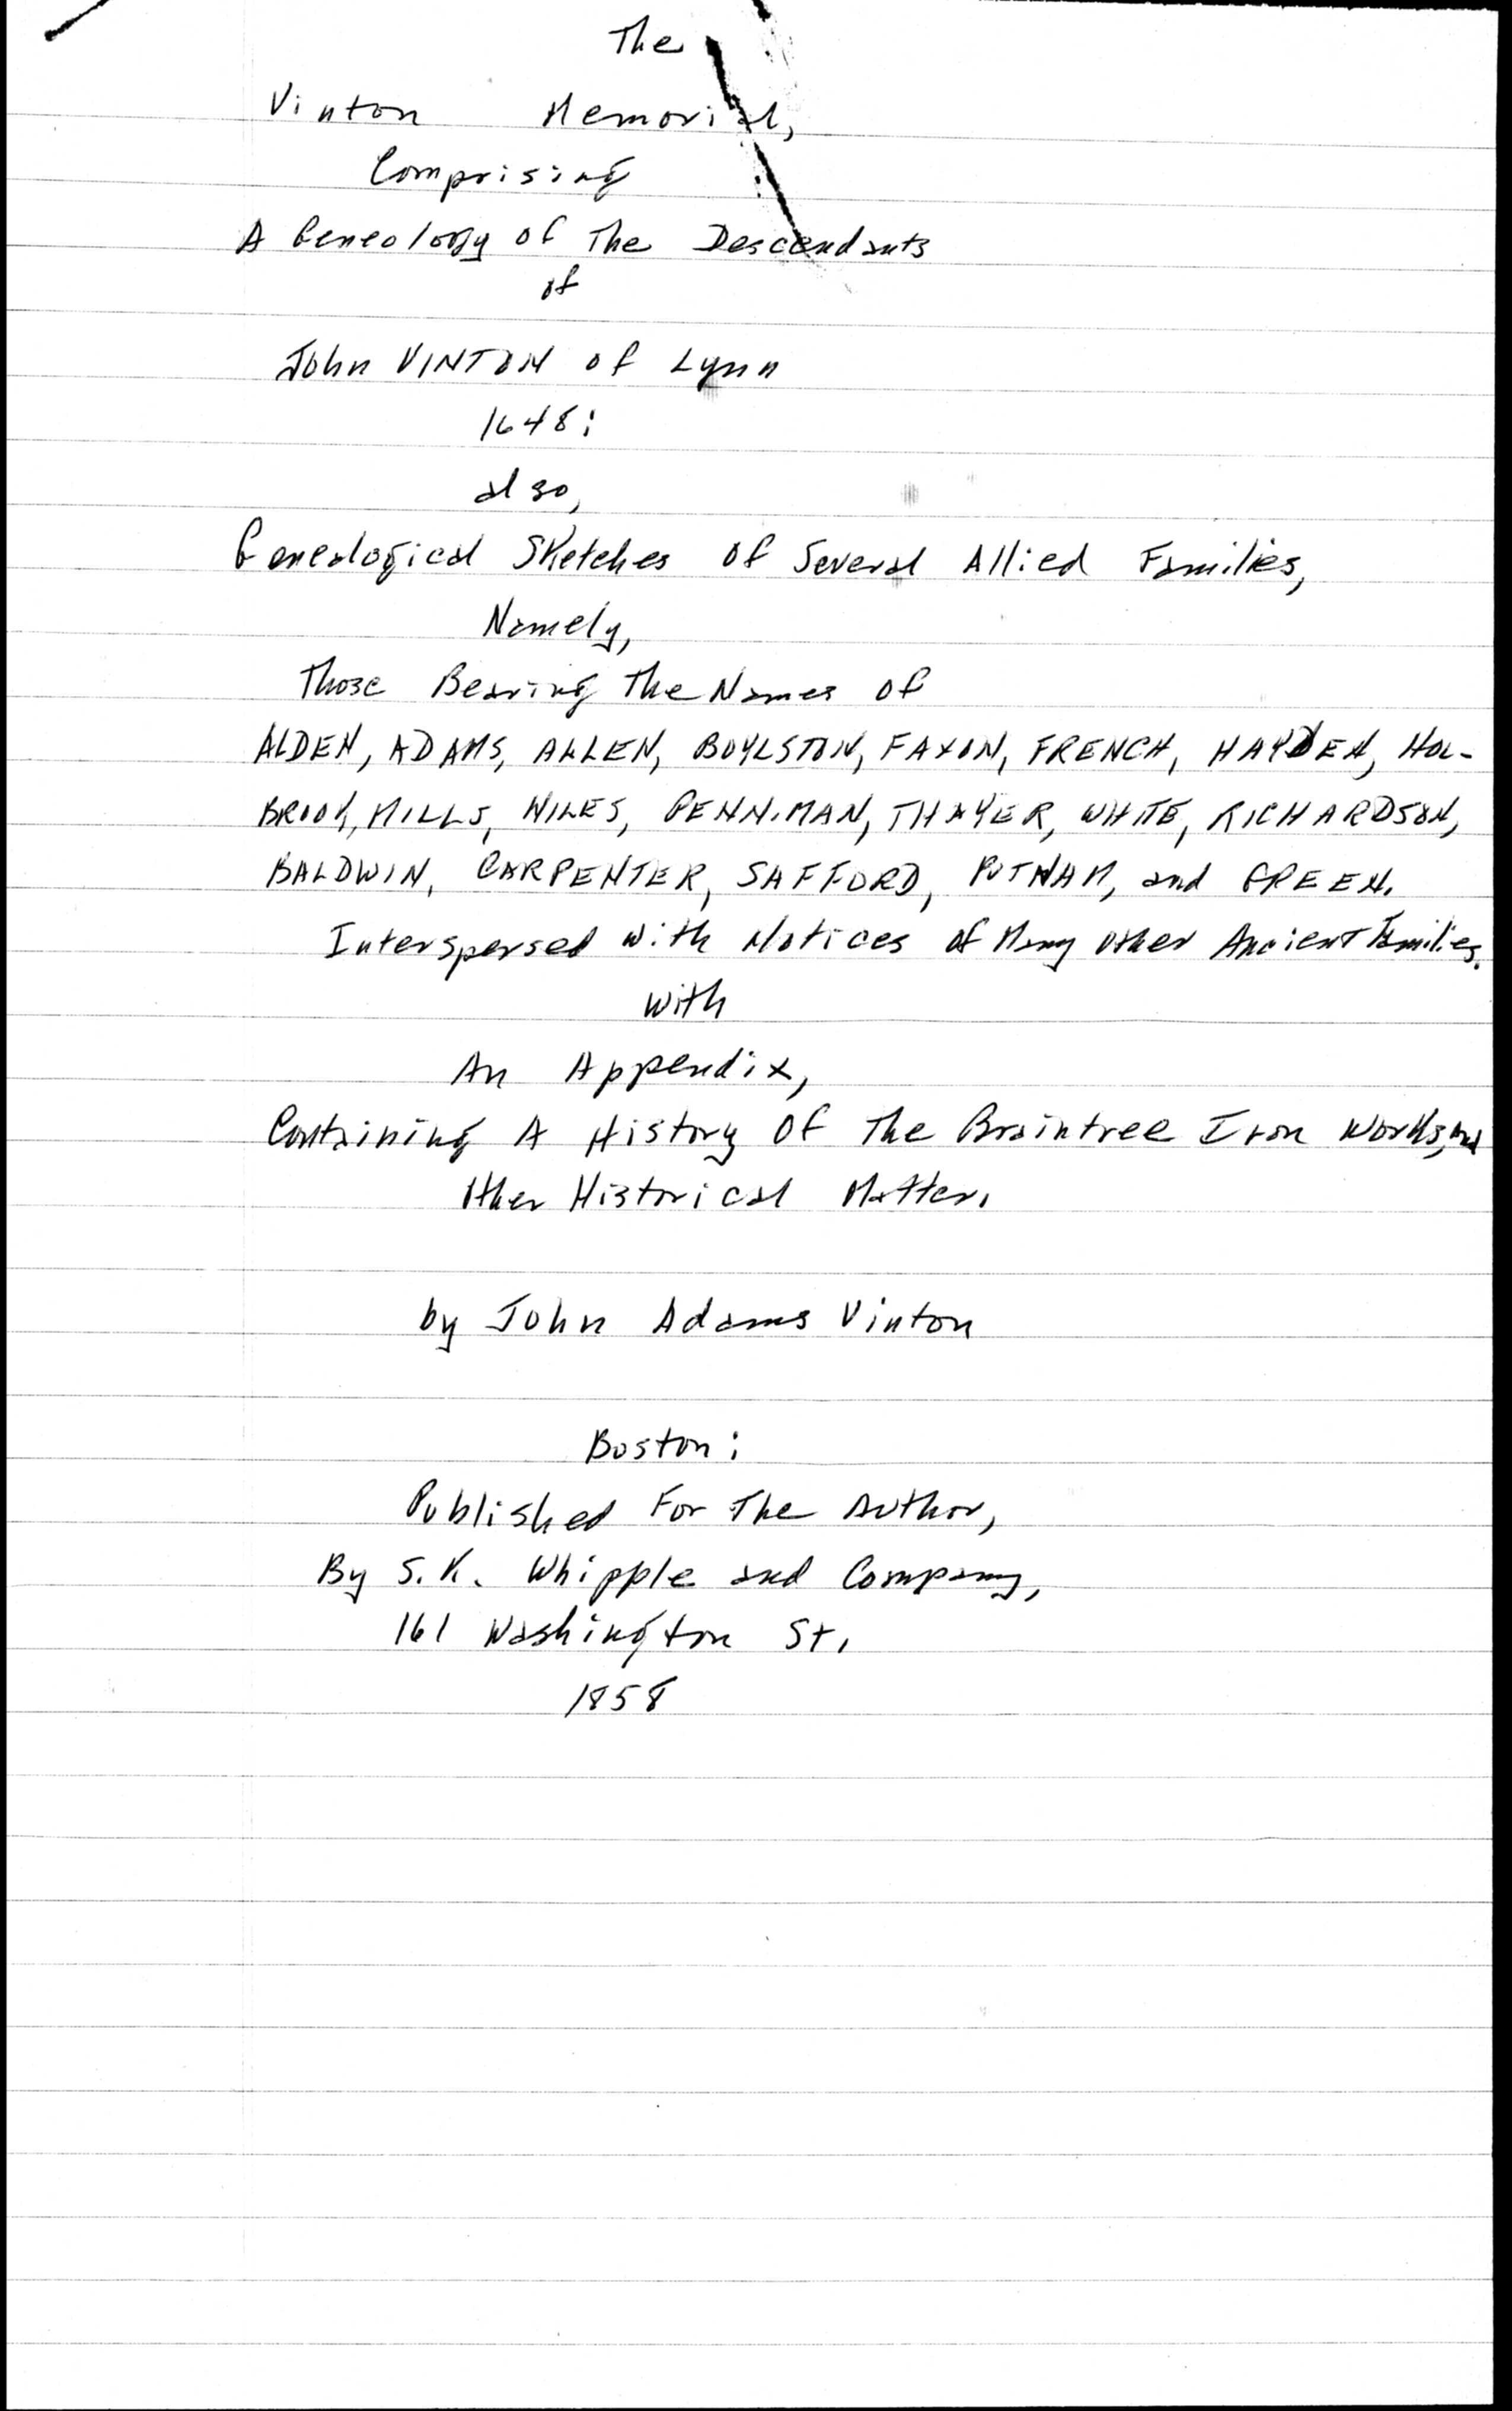 The
Vinton Memorial,
Comprising
A Geneology of The Descendants
of
John VINTON of Lynn
1648;
also,
Genealogical Sketches of Several Allied Families,
Namely,
Those Bearing The Names of
ALDEN, ADAMS, ALLEN, BOYLSTON, FAXON, FRENCH, HAYDEN, HOL-
BROOK, MILLS, NILES, PENNIMAN, THAYER, WHITE, RICHARDSON,
BALDWIN, CARPENTER, SAFFORD, PUTNAM, and GREEN.
Interspersed with Notices of Many other Ancient Families.
with
An Appendix,
Containing A History Of The Braintree Iron Works, and
other Historical Matter.
by John Adams Vinton
Boston:
Published For The Author,
By S.K. Whipple and Company,
161 Washington St.
1858